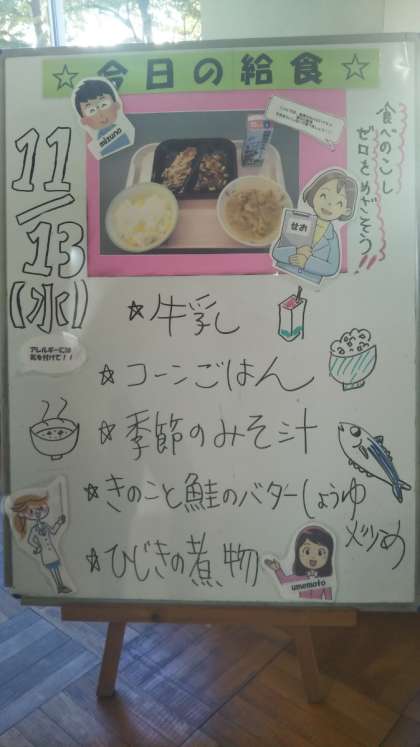 ☆今日の給食☆
mizuno
食べのこし
ゼロをめざそう!!
せお
11/13(水)
☆牛乳
アレルギーには
気を付けて!!
☆コーンごはん
☆季節のみそ汁
☆きのこと鮭のバターしょうゆ
炒め
☆ひじきの煮物
umemoto